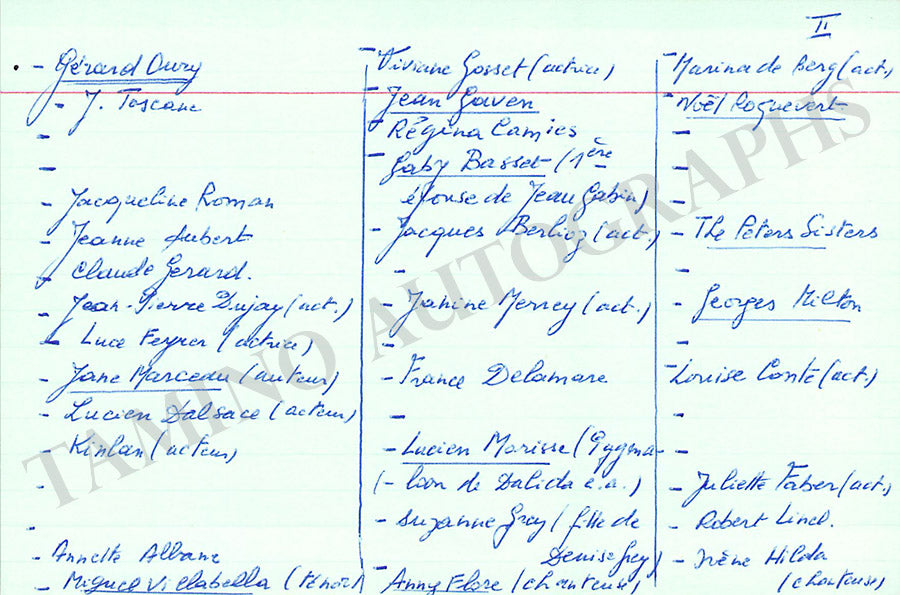 II
- Gérard Oury
- J. Toscane
-
-
- Jacqueline Roman
- Jeanne Aubert
- Claude Gérard.
- Jean-Pierre Dujay (act.)
- Luce Feyrer (actrice)
- Jane Marceau (auteur)
- Lucien Dalsace (acteur)
- Kinlan (acteur)
-
-
- Annette Albane
- Miguel Villabella (ténor)
- Viviane Gosset (actrice)
- Jean Gaven
- Régina Camies
- Gaby Basset (1ère
épouse de Jean Gabin)
- Jacques Berlioz (act.)
-
- Janine Merrey (act.)
-
- France Delamare
-
- Lucien Morisse (Pygma-
(- lion de Dalida e.a.)
- Suzanne Grey (fille de
Denise Grey)
- Anny Flore (chanteuse)
- Marina de Berg (act.)
- Noël Roquevert
-
-
-
- The Peters Sisters
-
- Georges Milton
-
- Louise Conte (act.)
-
-
- Juliette Faber (act.)
- Robert Linel.
- Irène Hilda
(chanteuse)
TAMINO AUTOGRAPHS